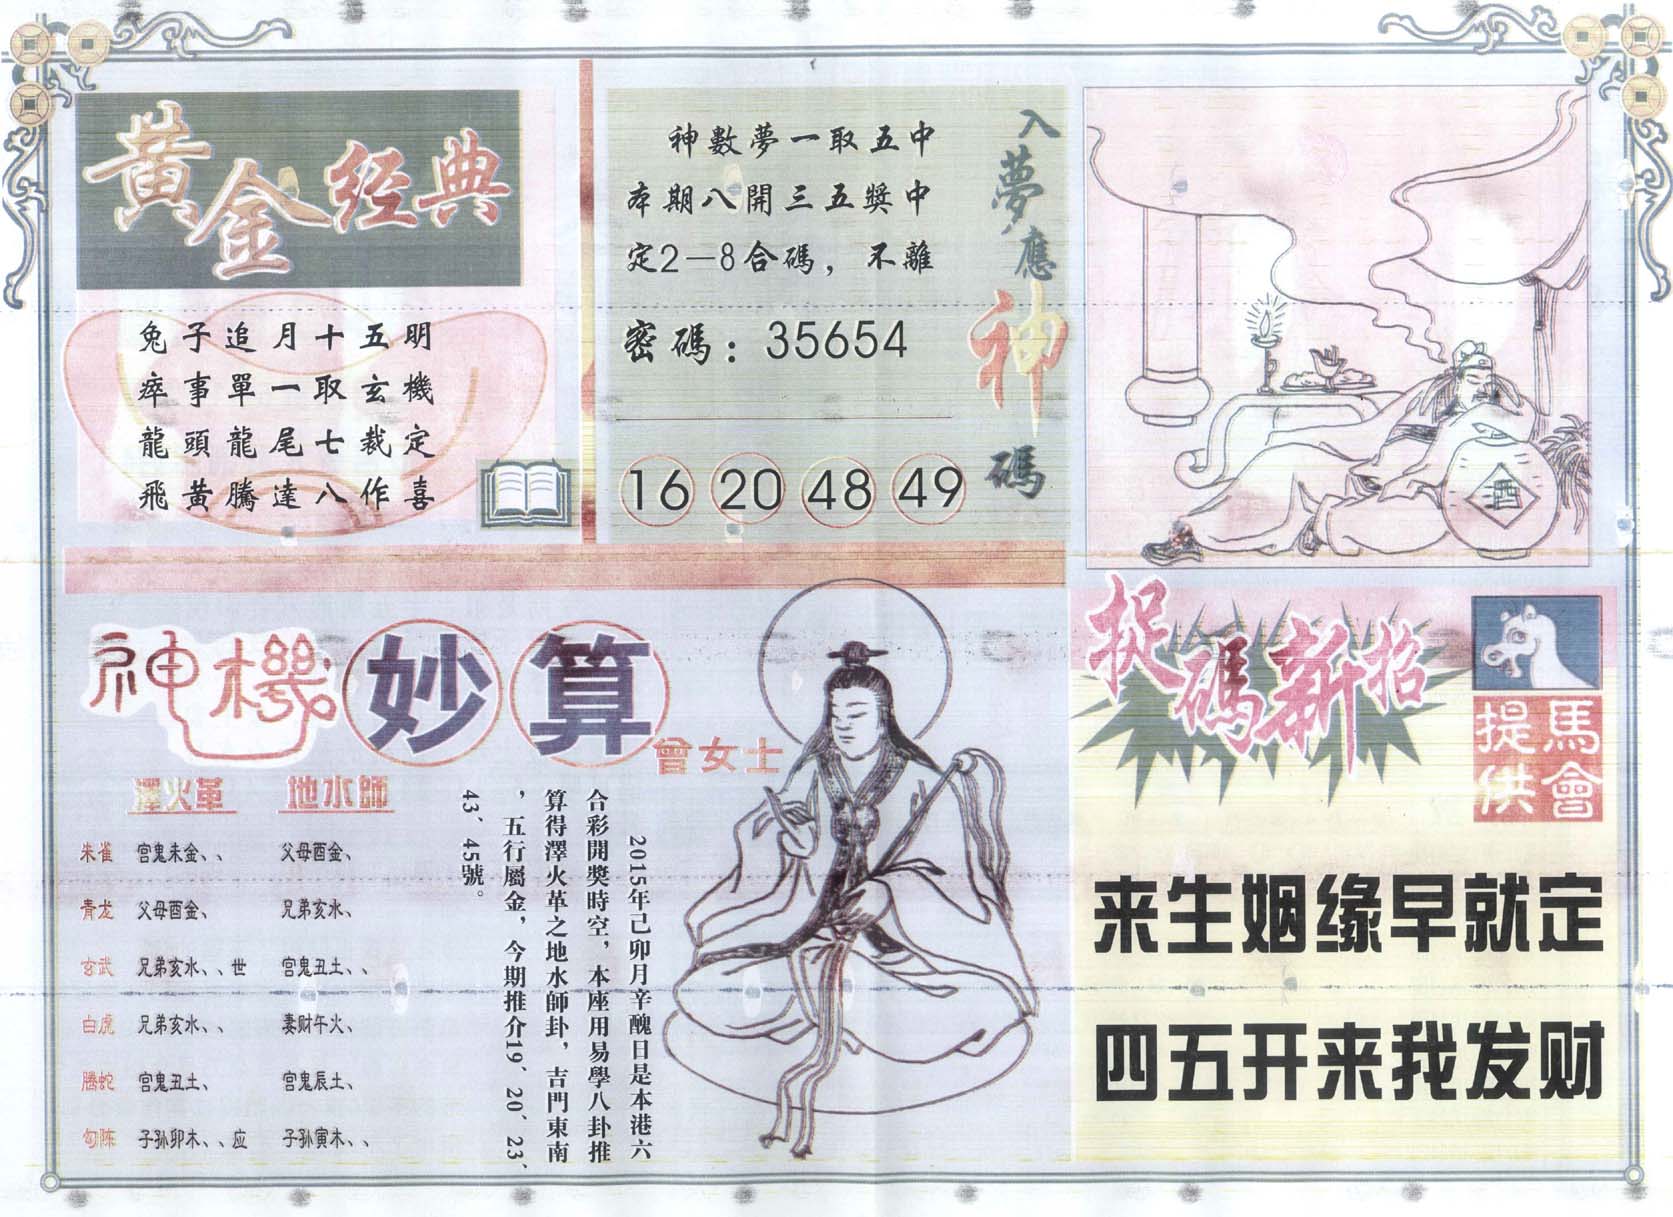 黃金经典
兔子追月十五明
瘁事單一取玄機
龍頭龍尾七裁定
飛黃騰達八作喜
神數夢一取五中
本期八開三五獎中
定2—8合碼，不離
密碼：35654
16 20 48 49
入夢應神碼
酒
神機妙算
曾女士
澤火革 地水師
朱雀 宫鬼未金、、 父母酉金、
青龙 父母酉金、 兄弟亥水、
玄武 兄弟亥水、、世 宫鬼丑土、、
白虎 兄弟亥水、、 妻财午火、
腾蛇 宫鬼丑土、 宫鬼辰土、
勾陈 子孙卯木、、应 子孙寅木、、
2015年己卯月辛醜日是本港六
合彩開獎時空，本座用易學八卦推
算得澤火革之地水師卦，吉門東南
，五行屬金，今期推介19、20、23、
43、45號。
捉碼新招
馬會提供
来生姻缘早就定
四五开来我发财